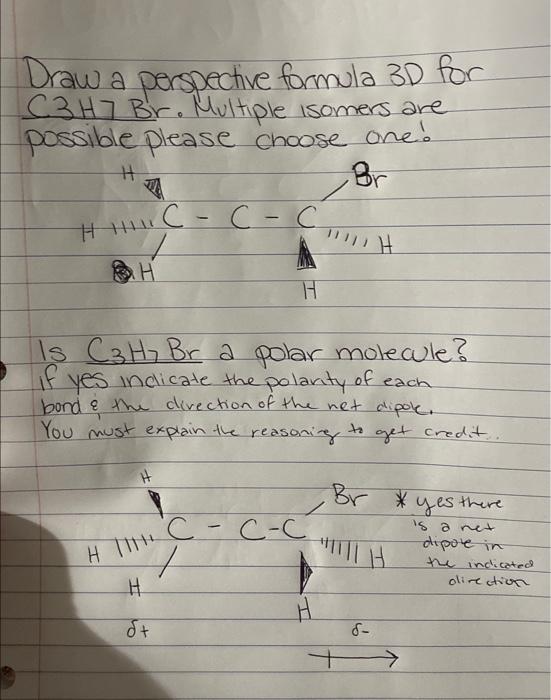 Draw a perspective formula 3D for
C3H7 Br. Multiple isomers are
possible please choose one!
H Br
H C - C - C H
H H
Is C3H7 Br a polar molecule?
if yes indicate the polarity of each
bond & the direction of the net dipole.
You must explain the reasoning to get credit..
H Br * yes there
is a net
H C - C - C H dipole in
the indicated
H direction
H
δ+ δ-